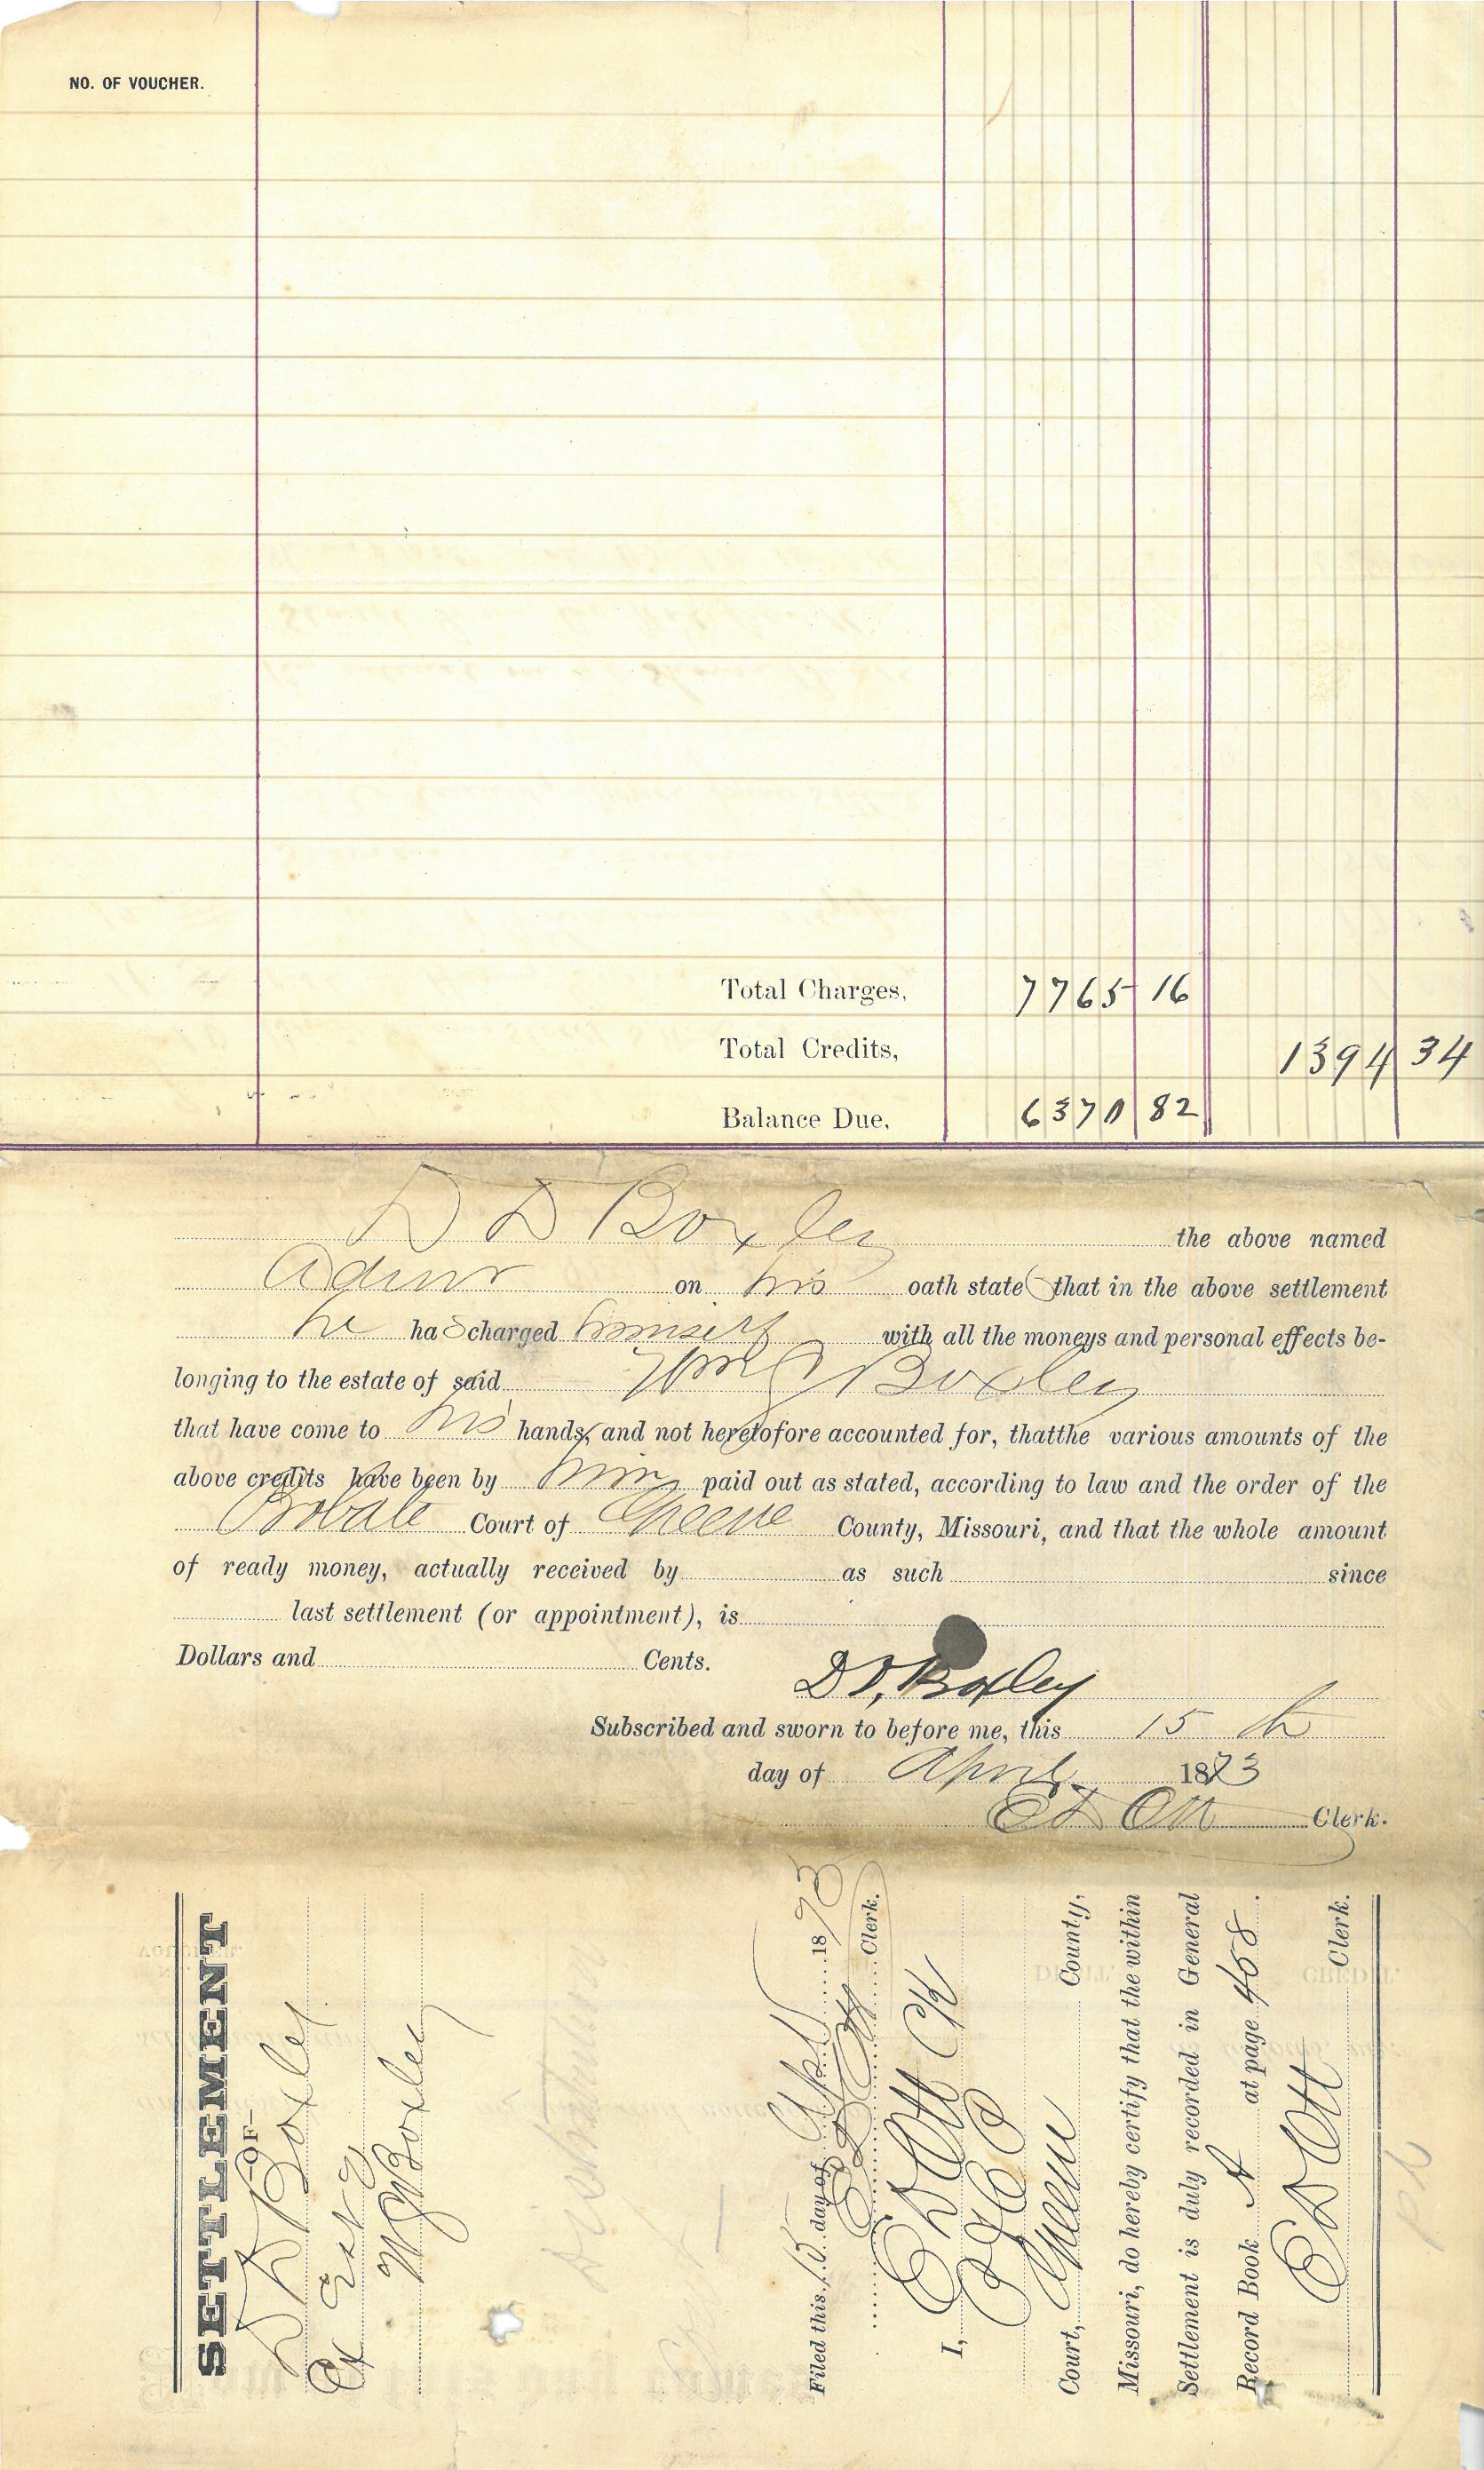 NO. OF VOUCHER.
Total Charges, 7765 16
Total Credits, 1394 34
Balance Due, 6370 82
D D Boxley the above named
Admr on his oath state that in the above settlement
he has charged himself with all the moneys and personal effects be-
longing to the estate of said Wm J Boxley
that have come to his hands, and not heretofore accounted for, thatthe various amounts of the
above credits have been by him paid out as stated, according to law and the order of the
Probate Court of Greene County, Missouri, and that the whole amount
of ready money, actually received by as such since
last settlement (or appointment), is
Dollars and Cents.
D D, Boxley
Subscribed and sworn to before me, this 15 th
day of April 1873
E D Ott Clerk.
SETTLEMENT
—OF—
D D Boxley
Ex Est of
W J Boxley
Distribution
Filed this 15 day of Apl 1873
E D Ott Clerk.
I, E D Ott Clk
Court, Greene County,
Missouri, do hereby certify that the within
Settlement is duly recorded in General
Record Book A at page 458.
E D Ott Clerk.